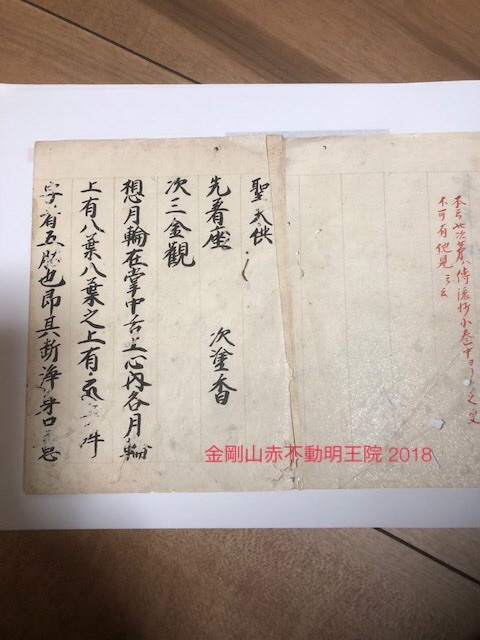 本云此次第傳抄小巻中ヨリ
不可有他見云云
聖天供
先着座 次塗香
次三金觀
想月輪在掌中舌上心内各月輪
上有八葉八葉之上有
字有五也即其断浄身口
金剛山赤不動明王院 2018